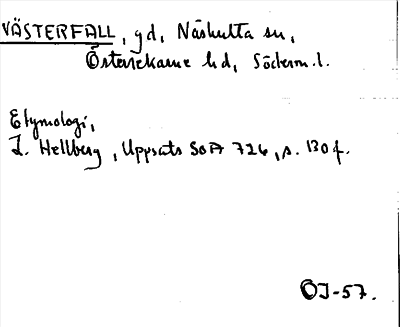 VÄSTERFALL, gd, Näshulta sn,
Österrekarne hd, Söderm.l.
Etymologi,
L. Hellberg, Uppsats SOA 726, s. 130 f.
ÖJ-57.